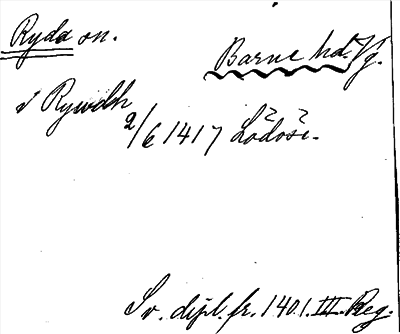 Ryda sn.
Barne hd. Vg.
i Rywdh
2/6 1417 Lödöse.
Sv. dipl. fr. 1401. III. Reg.